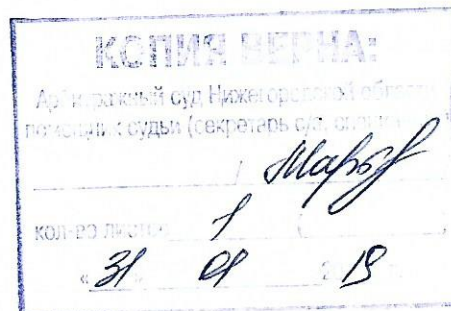 КОПИЯ ВЕРНА:
Арбитражный суд Нижегородской области
помощник судьи (секретарь с/з,
/
кол-во листов 1 (
« 31 » 01 19